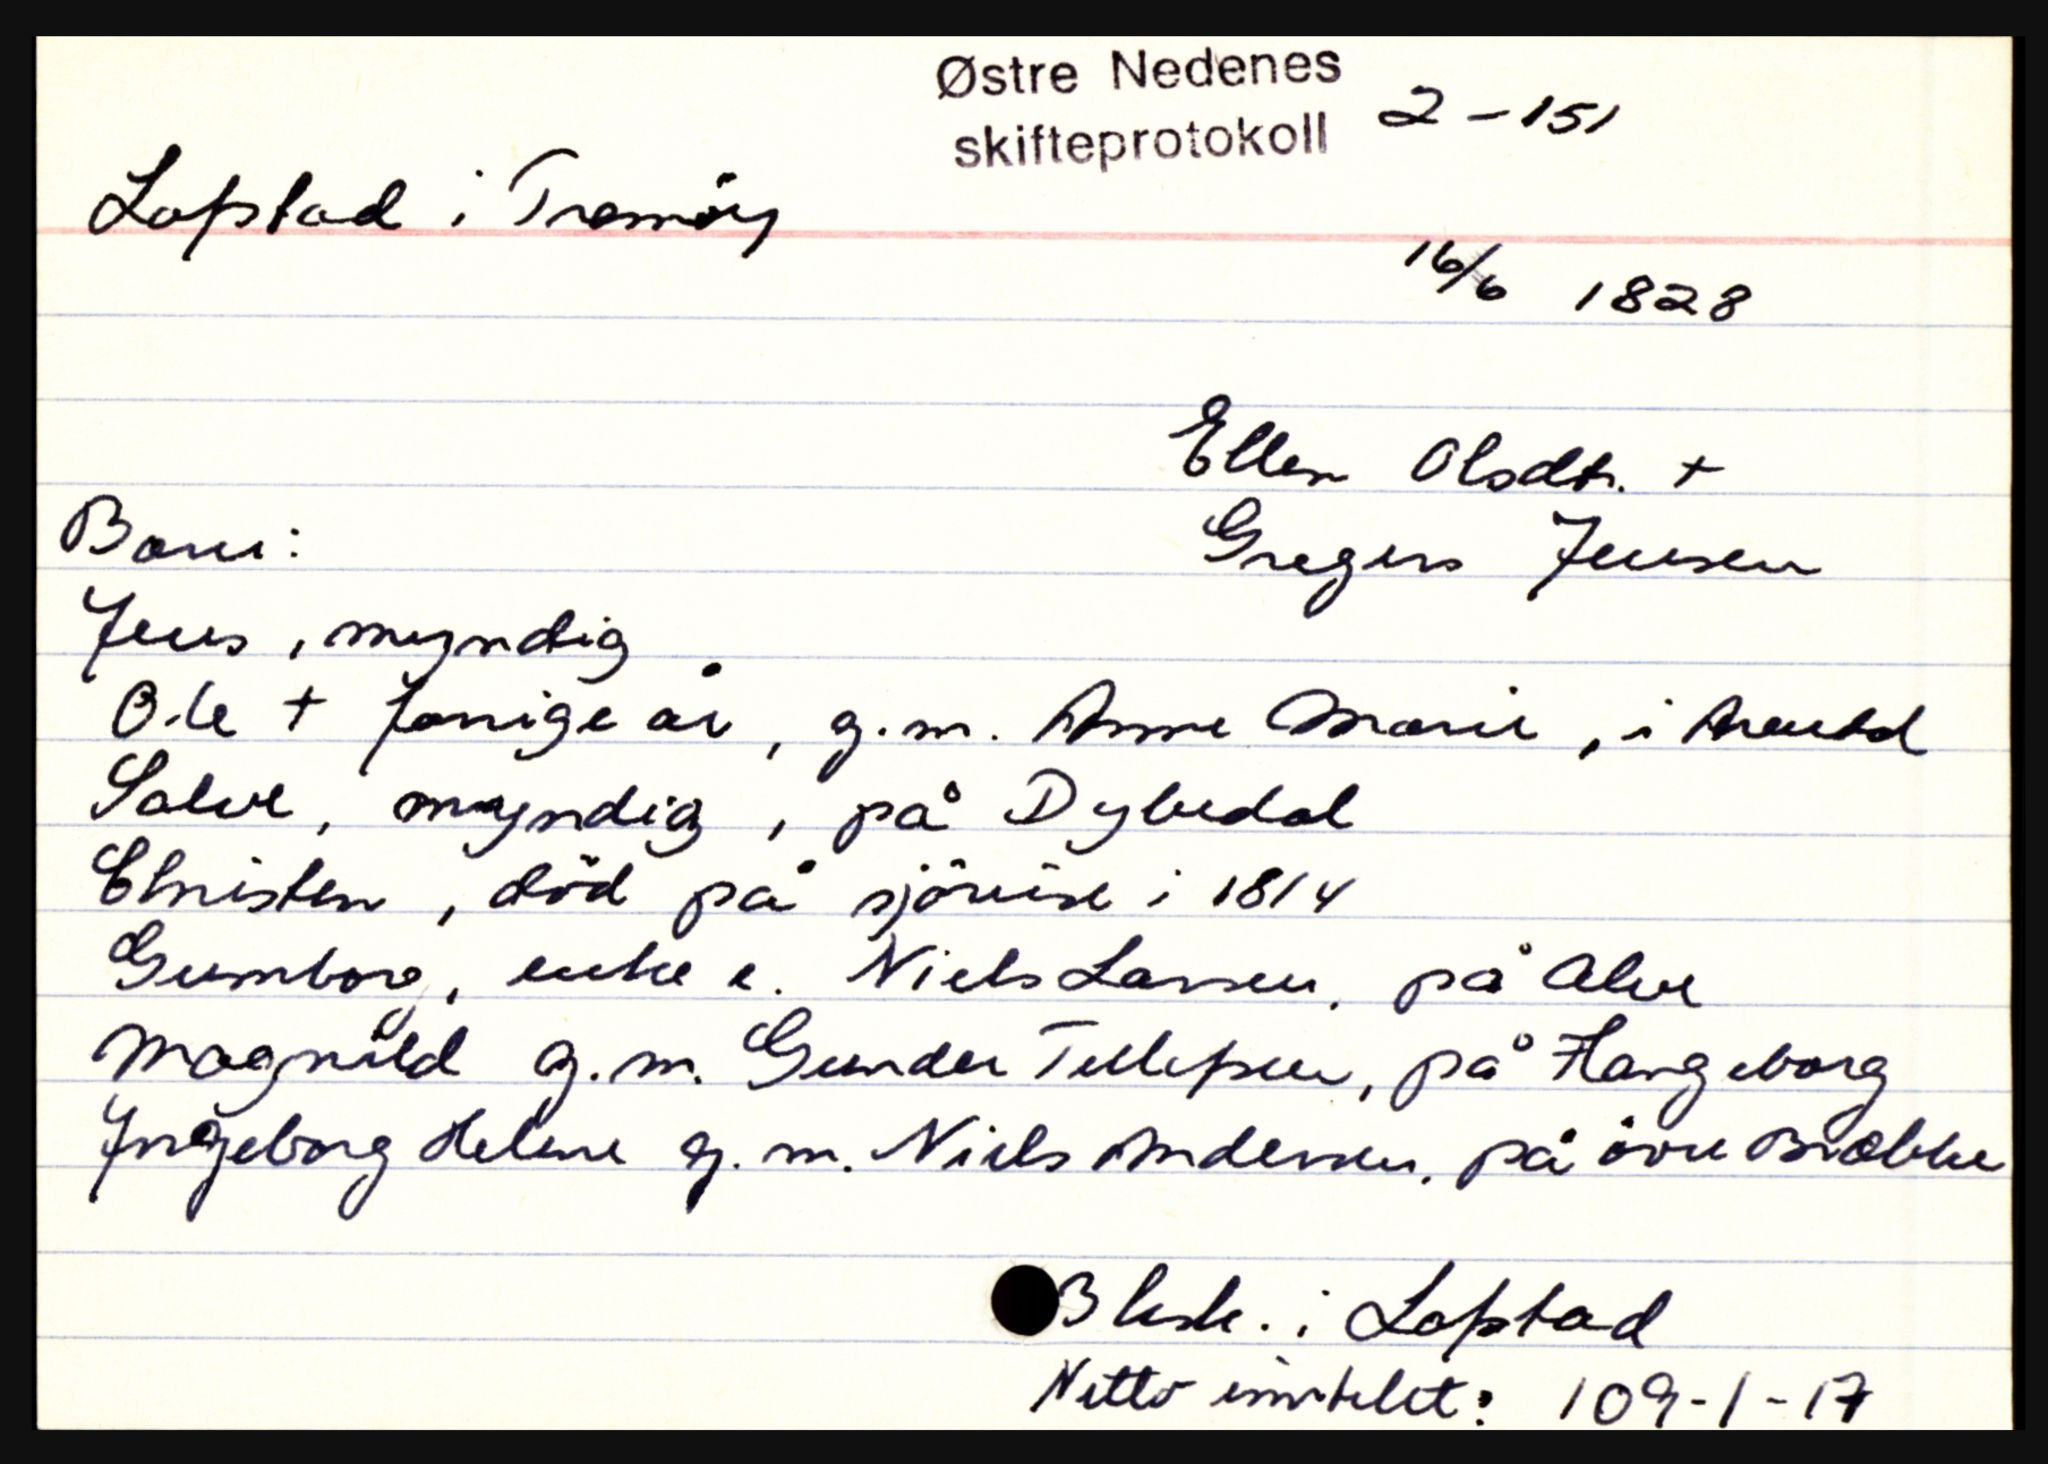 Østre Nedenes
skifteprotokoll 2-151
Lofstad i Tromöy
16/6 1828
Ellen Olsdtr. +
Gregers Jensen
Barn:
Jens, myndig
Ole + forrige år, g.m. Anne Marie, i Arendal
Salve, myndig, på Dybedal
Christen, död på sjöreise i 1814
Gumborg, enke e. Niels Larsen, på Alve
Magnild g.m. Gunder Tellefsen, på Hangeborg
Ingeborg Helene g.m. Niels Andersen, på övre Brække
3 i Lofstad
Netto utdelt: 109-1-17